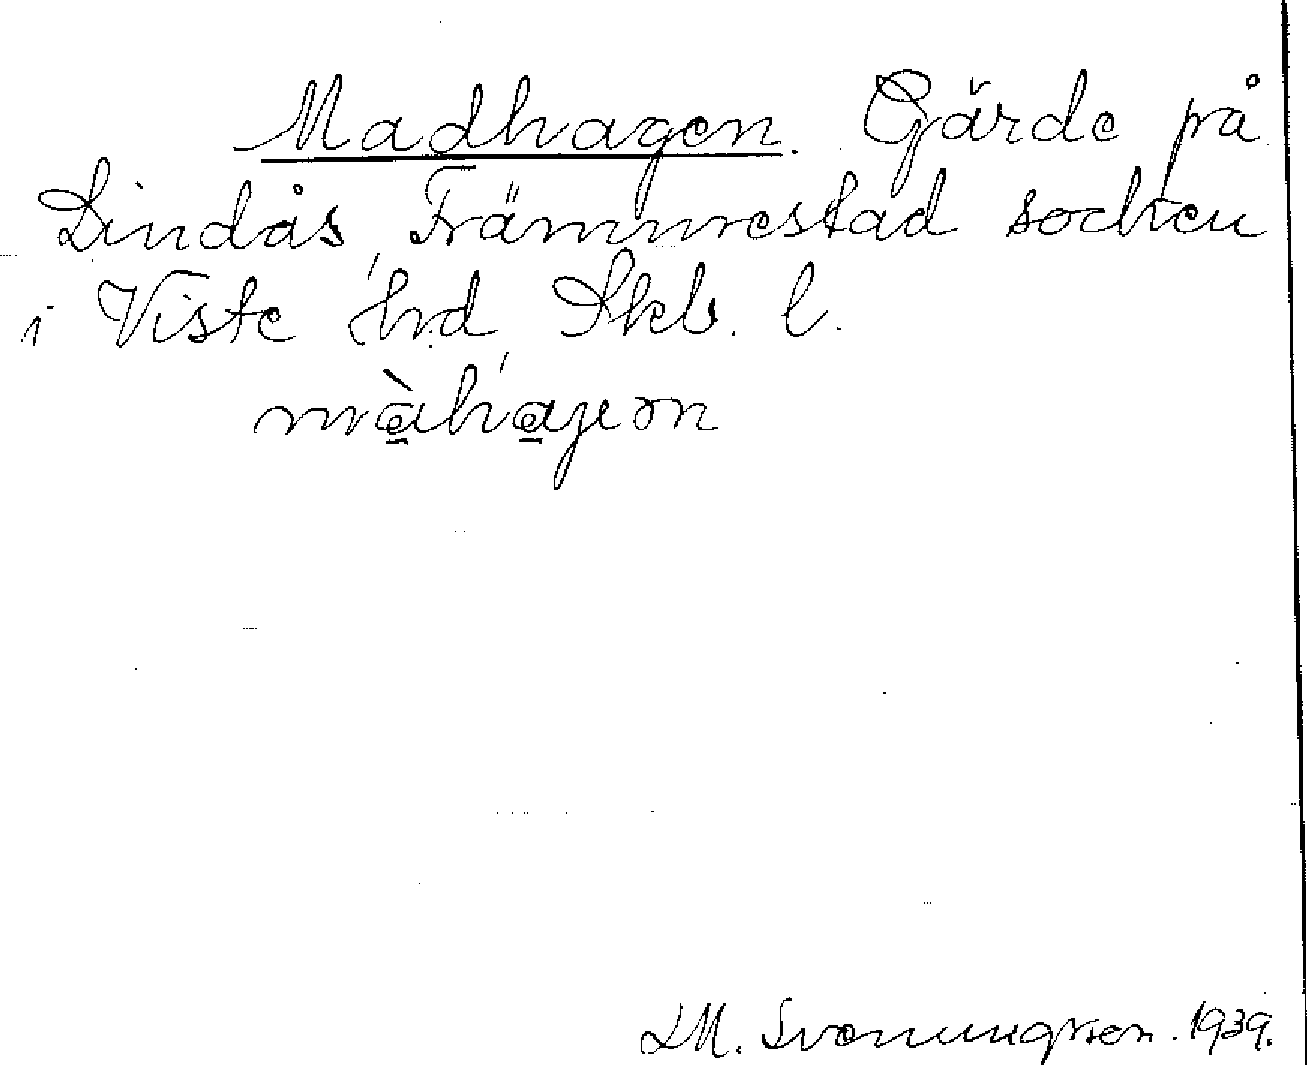 Madhagen. Gärde på
Lindås, Främmestad socken
i Viste hrd Skbs. l.
màhagen
L M. Svenungsson. 1939.